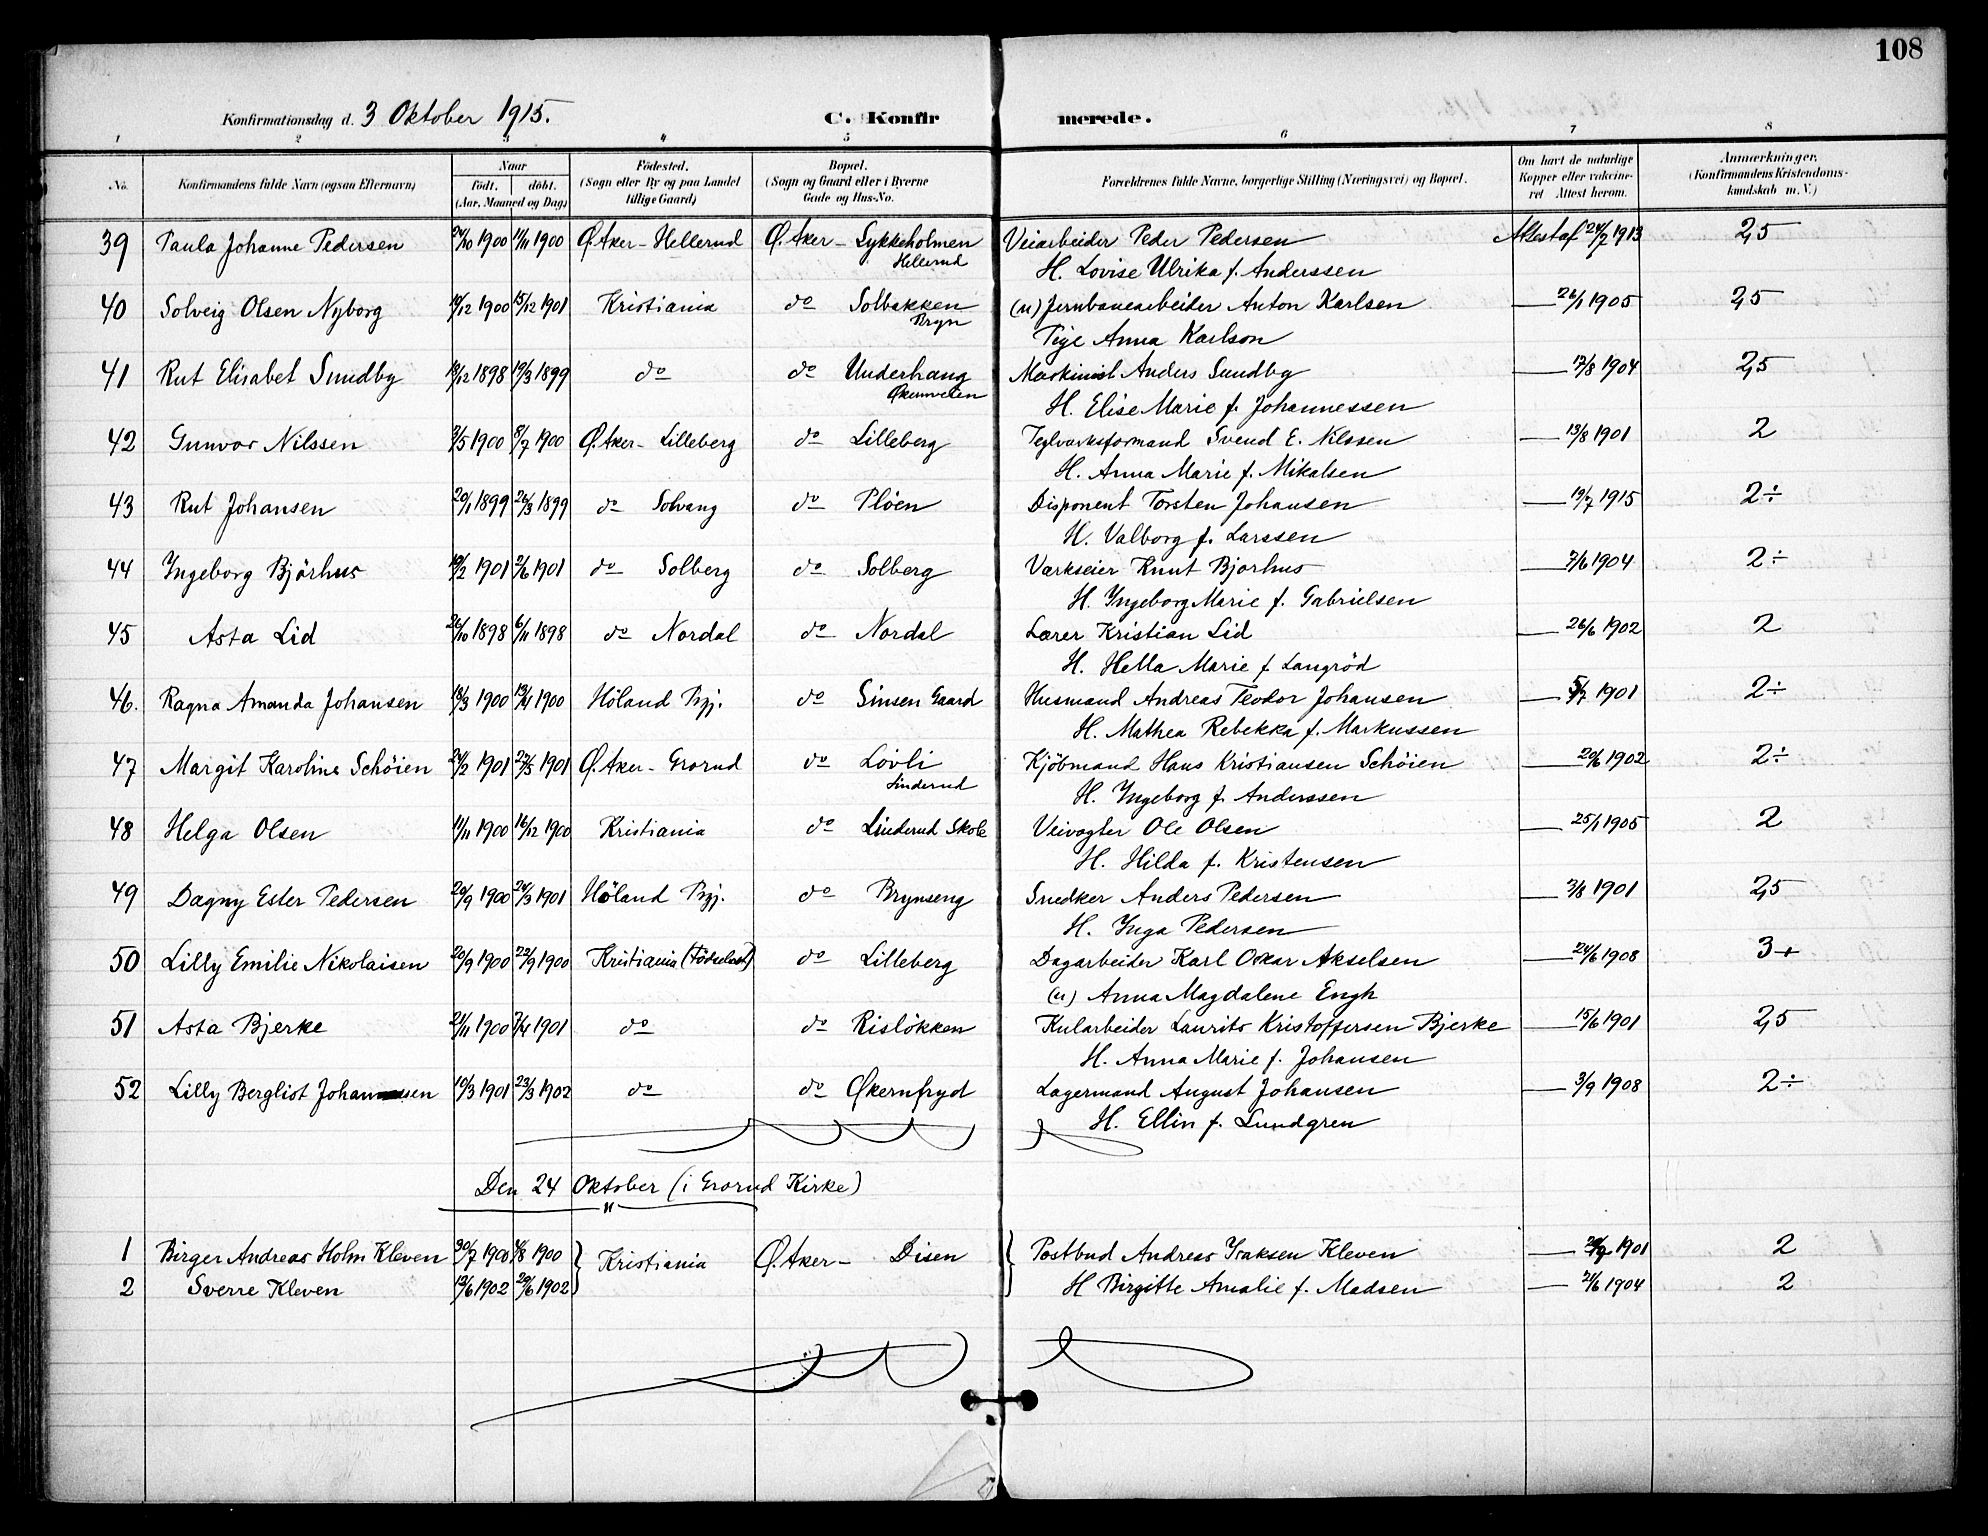 108
Konfirmationsdag d. 3 Oktober 1915. C. Konfirmerede.
1 2 3 4 5 6 7 8
No. Konfirmandens fulde Navn (ogsaa Efternavn) Naar født. døbt. (Aar, Maaned og Dag) Fødested. (Sogn eller By og paa Landet tillige Gaard) Bopæl. (Sogn og Gaard eller i Byerne Gade og Hus-No. Forældrenes fulde Navne, borgerlige Stilling (Næringsvei) og Bopæl. Om havt de naturlige Kopper eller vakcineret Attest herom. Anmærkninger. (Konfirmandens Kristendomskundskab m. V.)
39 Paula Johanne Pedersen 1900 11/11 1900 Ø. Aker - Hellerud Ø. Aker - Lykkeholmen Veiarbeider Peder Pedersen Attest af 1913 2,5
Hellerud H. Lovise Ulrika f. Anderssen
40 Solveig Olsen Nyborg 19/12 1900 15/12 1901 Kristiania do Solbakken (u) Jernbanearbeider Anton Karlsen — 26/1 1905 2,5
Bryn Pige Anna Karlson
41 Rut Elisabet Sundby 19/12 1898 19/3 1899 do do Underhaug Maskinist Anders Sundby — 12/8 1904 2,5
Økernveien H. Elise Marie f. Johannessen
42 Gunvor Nilssen 3/5 1900 8/7 1900 Ø. Aker - Lilleberg do Lilleberg Teglverksformand Svend E. Nilssen — 13/8 1901 2
H. Anna Marie f. Mikalsen
43 Rut Johansen 20/1 1899 26/3 1899 do Solvang do Pløen Disponent Torsten Johansen — 19/7 1915 2÷
H. Valborg f. Larssen
44 Ingeborg Bjørhus 1901 2/6 1901 do Solberg do Solberg Værkseier Knut Bjørhus — 3/6 1904 2÷
H. Ingeborg Marie f. Gabrielsen
45 Asta Lid 26/10 1898 6/11 1898 do Nordal do Nordal Lærer Kristian Lid — 26/6 1902 2
H. Hella Marie f. Langrød
46. Ragna Amanda Johansen 18/3 1900 1900 Høland Bgj. do Sinsen Gaard Husmand Andreas Teodor Johansen — 1901 2÷
H. Mathea Rebekka f. Markussen
47 Margit Karoline Schøien 24/2 1901 27/5 1901 Ø. Aker - Grorud do Løvli Kjøbmand Hans Kristiansen Schøien — 20/6 1902 2÷
Linderud H. Ingeborg f. Anderssen
48 Helga Olsen 11/11 1900 16/12 1900 Kristiania do Linderud Skole Veivogter Ole Olsen — 25/1 1905 2
H. Hilda f. Kristensen
49 Dagny Ester Pedersen 20/9 1900 24/3 1901 Høland Bgj. do Brynseng Snedker Anders Pedersen — 3/8 1901 2,5
H. Inga Pedersen
50 Lilly Emilie Nikolaisen 20/9 1900 22/9 1900 Kristiania do Lilleberg Dagarbeider Karl Oskar Akselsen — 24/6 1908 3+
(u) Anna Magdalene Engh
51 Asta Bjerke 21/11 1900 7/4 1901 do do Risløkken Kularbeider Laurits Kristoffersen Bjerke — 15/6 1901 2,5
H. Anna Marie f. Johansen
52 Lilly Bergliot Johansen 10/3 1901 23/3 1902 do do Økernfryd Lagermand August Johansen — 3/9 1908 2÷
H. Ellin f. Lundgren
Den 24 Oktober (i Grorud Kirke)
1 Birger Andreas Holm Kleven 30/7 1900 1900 } Kristiania Ø. Aker - Disen } Postbud Andreas Isaksen Kleven — 1901 2
2 Sverre Kleven 1902 29/6 1902 H Birgitte Amalie f. Madsen — 21/6 1904 2